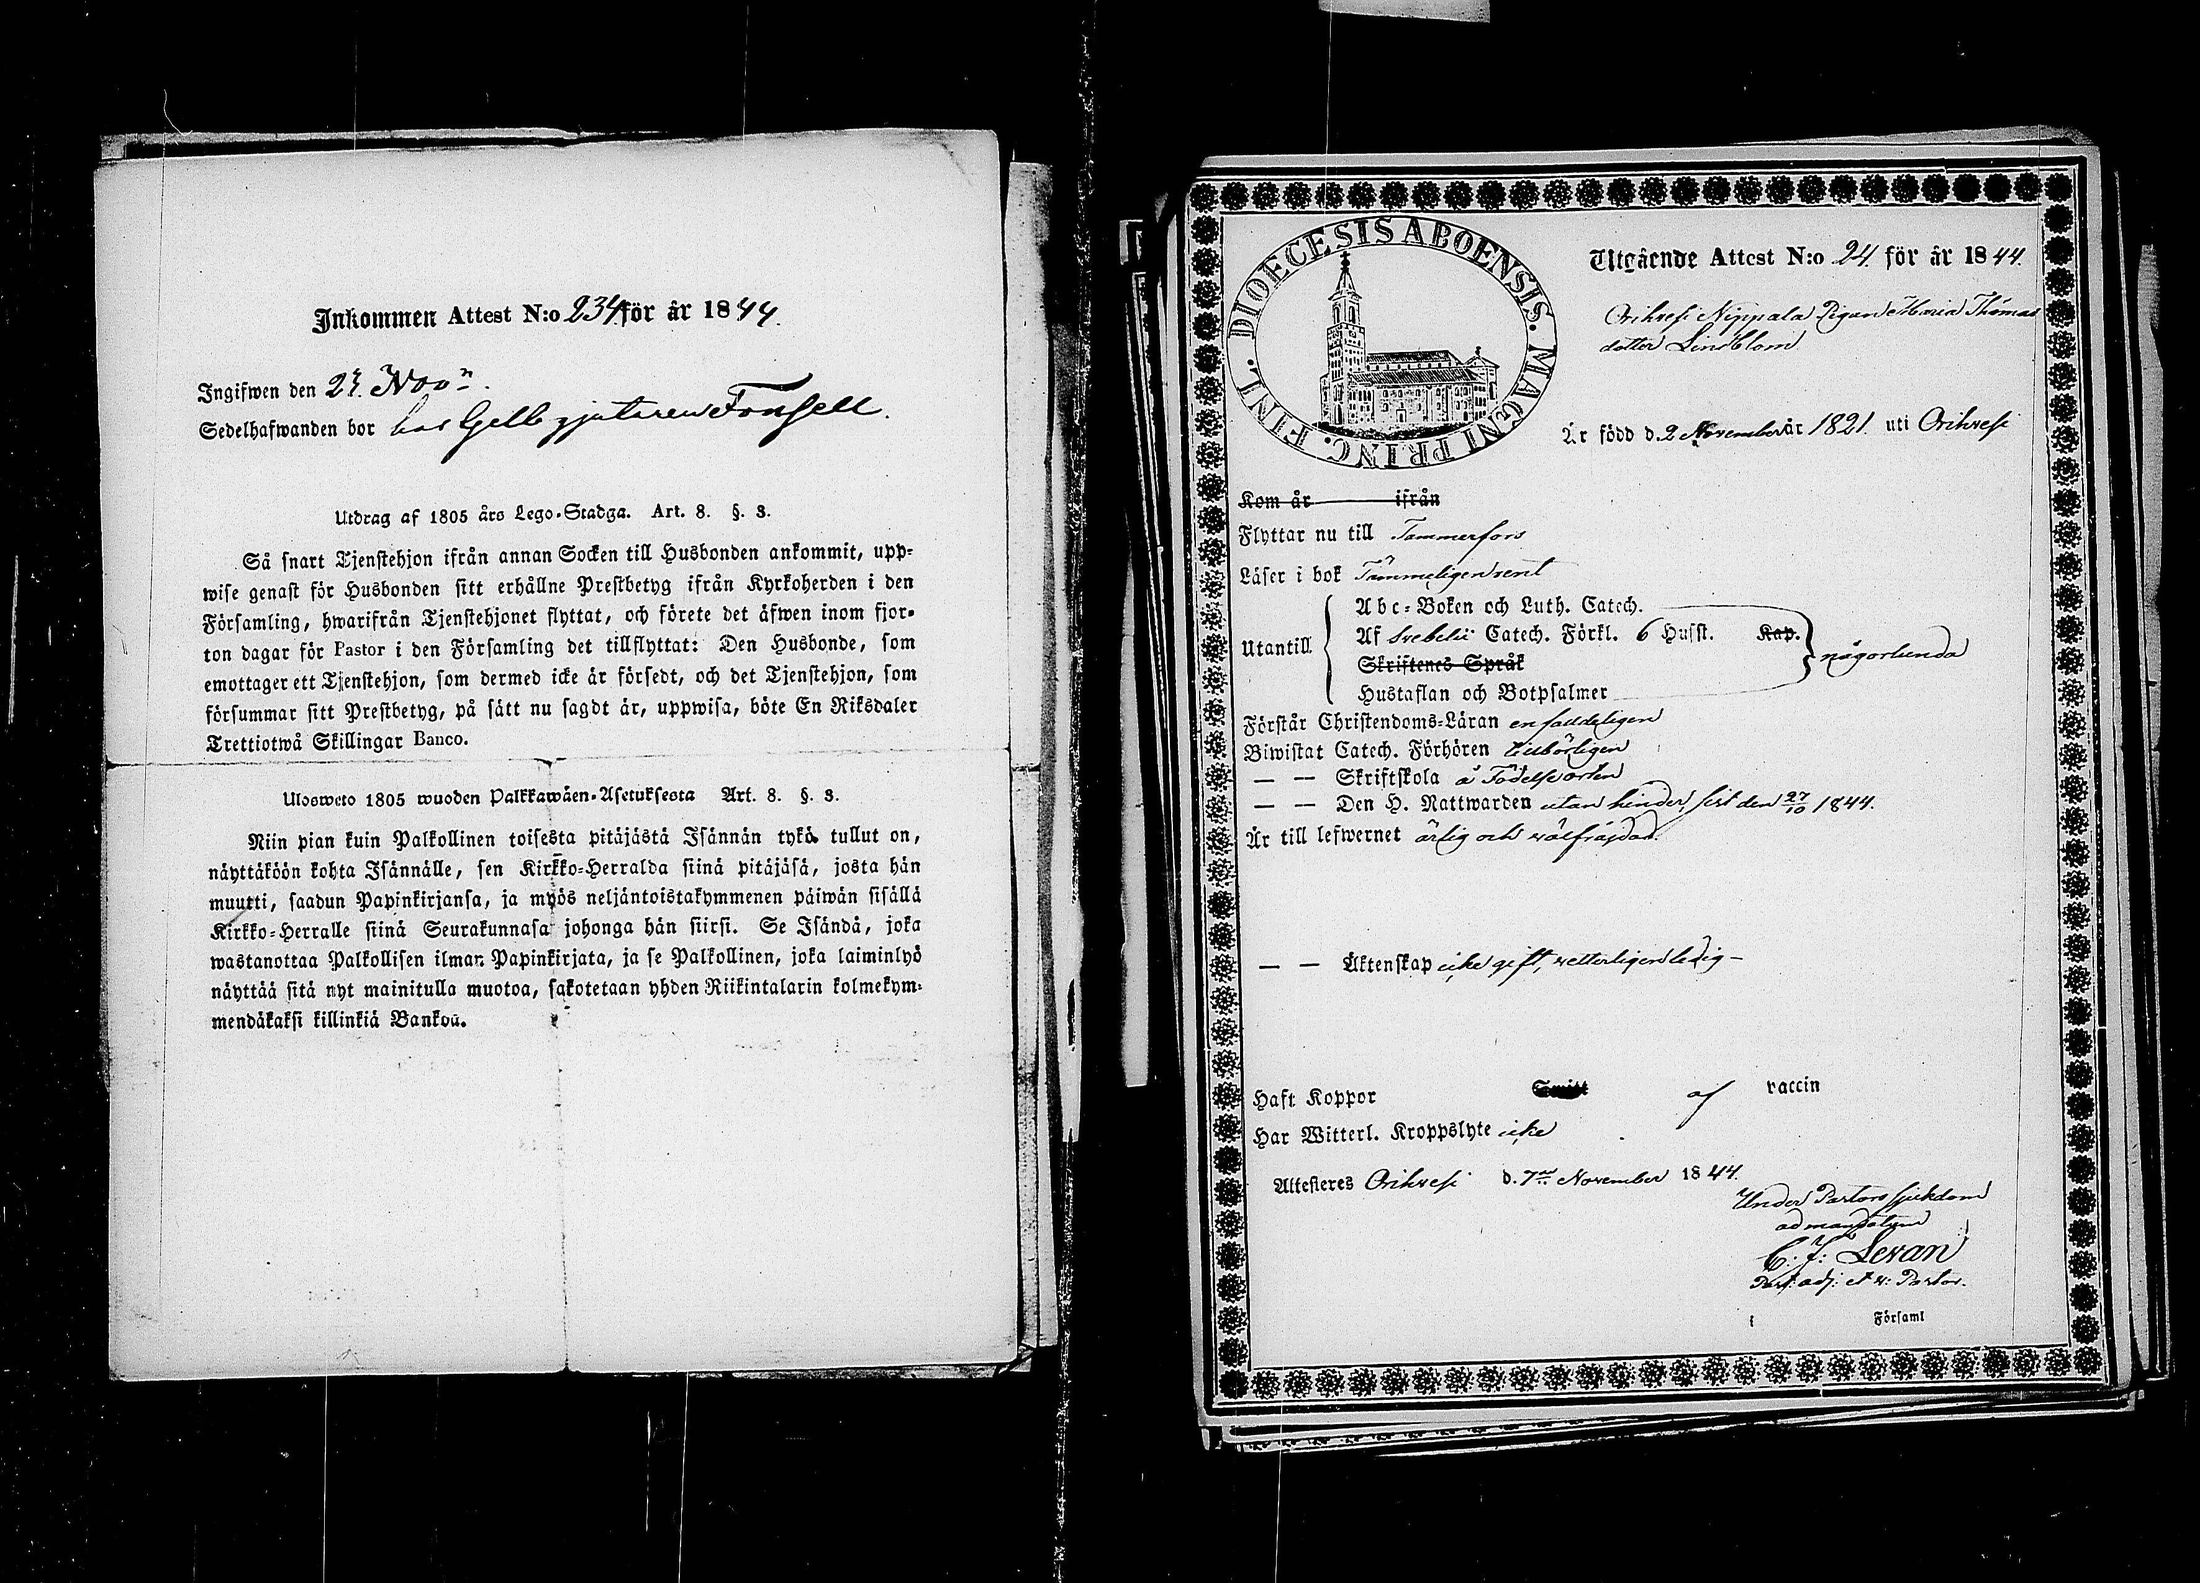 Inkommen Attest N:o 234 för år 1844.
Ingifwen den 27. Nov:r.
Sedelhafwanden bor hos Gelbgjutaren Fonsell.
Utdrag af 1805 års Lego-Stadga. Art. 8. §. 3.
Så snart Tjenstehjon ifrån annan Socken till Husbonden ankommit, upp-
wise genast för Husbonden sitt erhållne Prestbetyg ifrån Kyrkoherden i den
Församling, hwarifrån Tjenstehjonet flyttat, och förete det äfwen inom fjor-
ton dagar för Pastor i den Församling det tillflyttat: Den Husbonde, som
emottager ett Tjenstehjon, som dermed icke är försedt, och det Tjenstehjon, som
försummar sitt Prestbetyg, på sätt nu sagdt är, uppwisa, böte En Riksdaler
Trettiotwå Skillingar Banco.
Ulosweto 1805 wuoden Palkkawäen-Asetuksesta Art. 8. §. 3.
Niin pian kuin Palkollinen toisesta pitäjästä Isännän tykö tullut on,
näyttäköön kohta Isännälle, sen Kirkko-Herralda siinä pitäjäsä, josta hän
muutti, saadun Papinkirjansa, ja myös neljäntoistakymmenen päiwän sisällä
Kirkko-Herralle siinä Seurakunnasa johonga hän siirsi. Se Isändä, joka
wastanottaa Palkollisen ilman Papinkirjata, ja se Palkollinen, joka laiminlyö
näyttää sitä nyt mainitulla muotoa, sakotetaan yhden Riikintalarin kolmekym-
mendäkaksi killinkiä Bankoa.
DIOECESIS ABOENSIS. MAGNI PRINC. FINL.
Utgående Attest N:o 24. för år 1844.
Orihvesi Nippala Pigan Maria Thomas
dotter Lindblom
Är född d. 2 November år 1821. uti Orihvesi
Kom år ifrån
Flyttar nu till Tammerfors
Läser i bok Tämmeligen rent
Abc-Boken och Luth. Catech.
Utantill Af Svebelii Catech. Förkl. 6 Husst. Kap. någorlunda
Skriftenes Språk
Hustaflan och Botpsalmer
Förstår Christendoms-Läran enfaldeligen
Biwistat Catech. Förhören tillbörligen
— — Skriftskola å Födelseorten
— — Den H. Nattwarden utan hinder, sist den 27/10 1844.
Är till lefwernet ärlig och välfräjdad.
— — Äktenskap icke gift, vetterligen ledig —
Haft Koppor af vaccin
Har Witterl. Kroppslyte icke
Attesteres Orihvesi d. 7:de November 1844.
Under Pastors sjukdom
ad mandatum
C. J. Levan
Past: adj: et v: Pastor.
i Församl